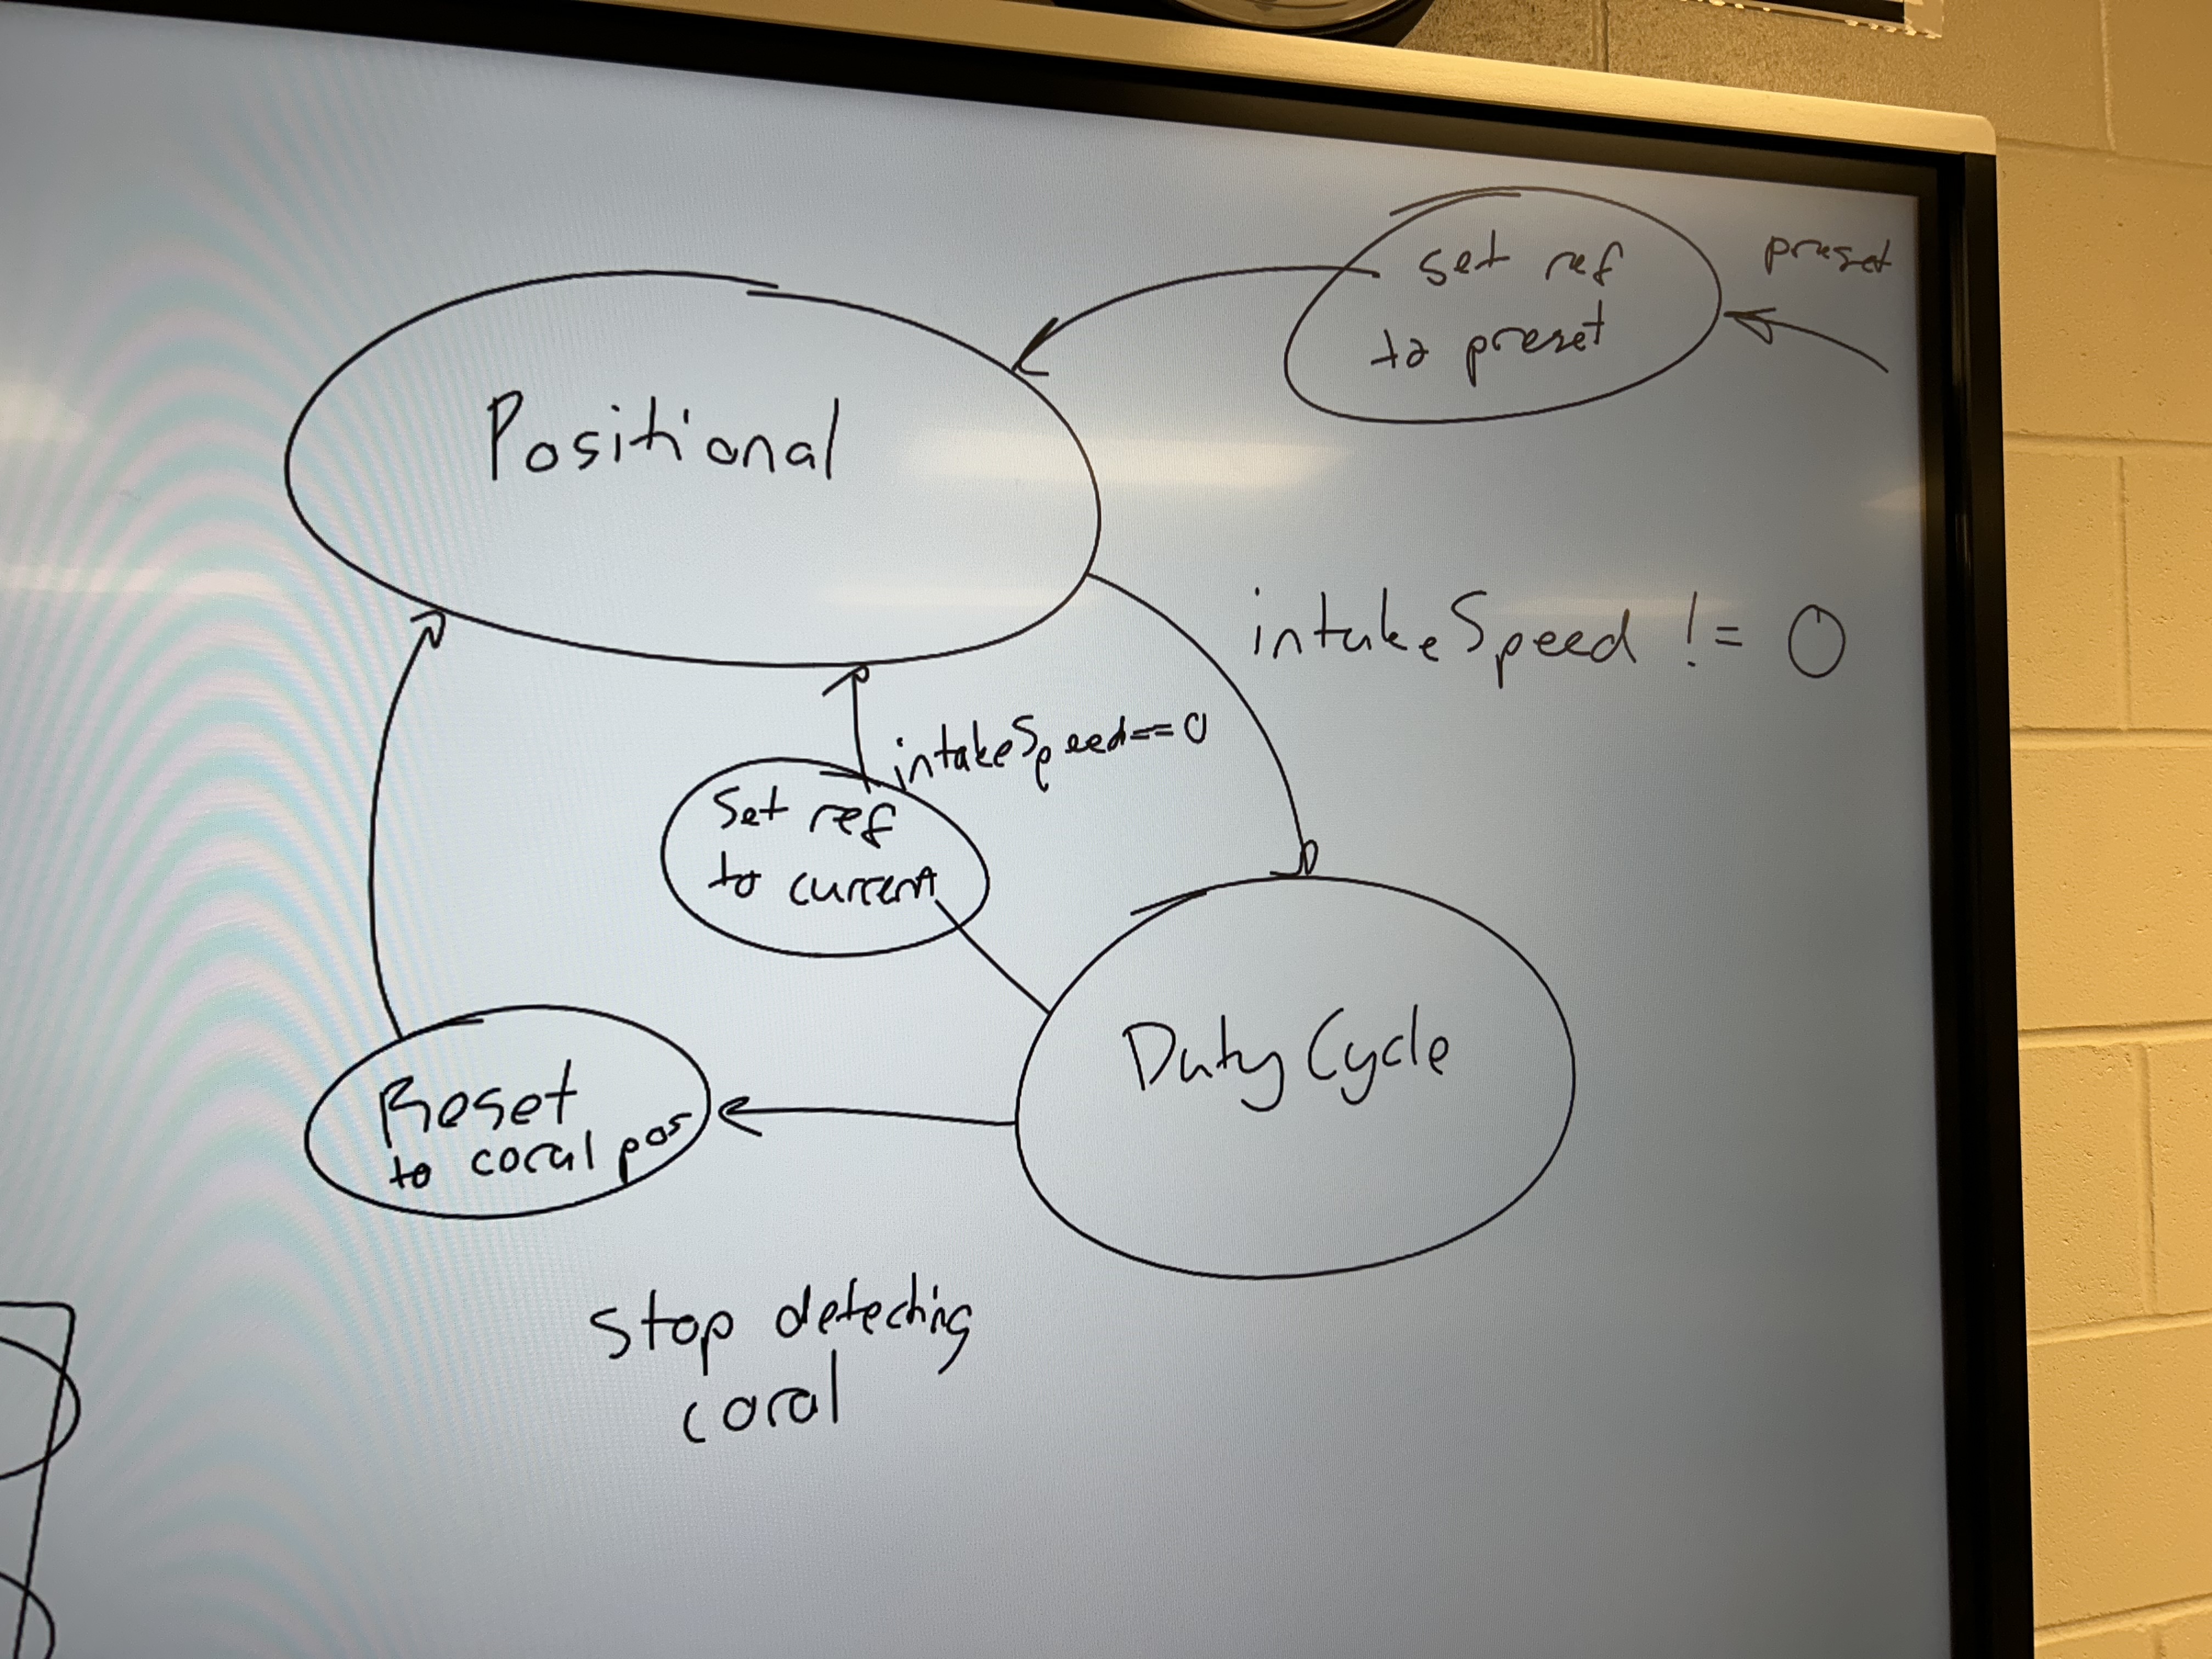 preset
set ref
to preset
Positional
intakeSpeed != 0
intakeSpeed==0
Set ref
to current
Duty Cycle
Reset
to coral pos
stop detecting
coral